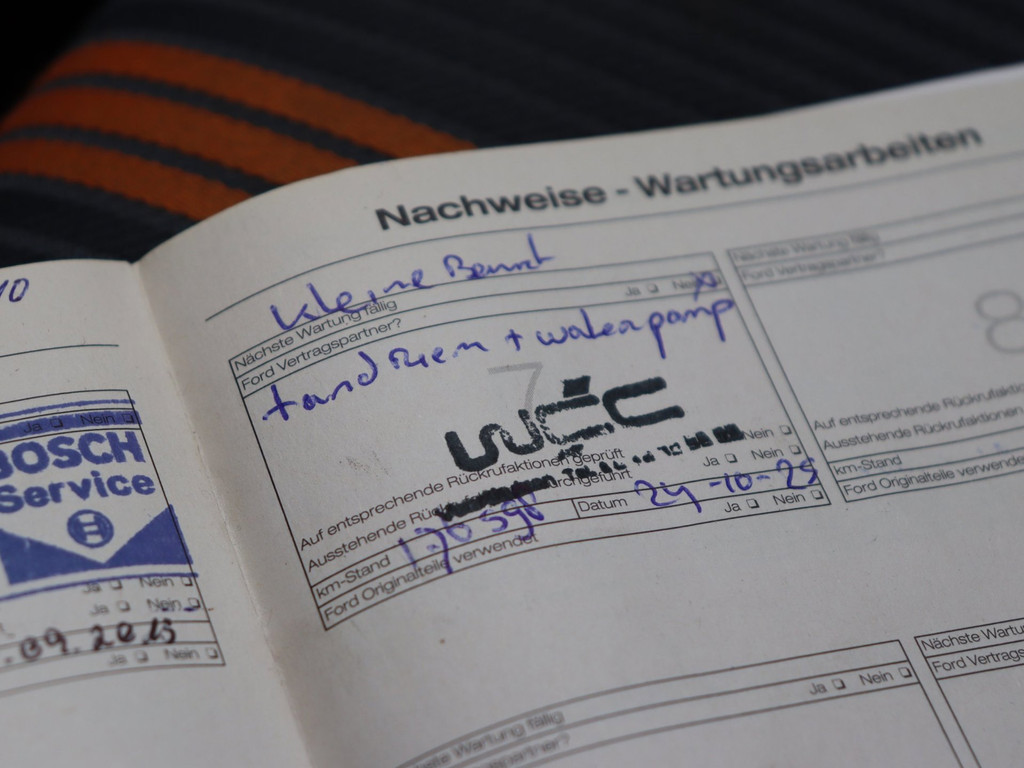 Nachweise - Wartungsarbeiten
10
Kleine Beurt
Nächste Wartung fällig
Ford Vertragspartner? Ja Nein
tandriem + waterpomp
7
WEC
Auf entsprechende Rückrufaktionen geprüft Nein
Ausstehende Ja Nein
km-Stand Datum 24-10-25
Ford Originalteile verwendet Ja Nein
Nächste Wartung fällig
Ford Vertragspartner?
8
Auf entsprechende Rückrufaktionen
Ausstehende Rückrufaktionen
km-Stand
Ford Originalteile verwendet
Ja Nein
BOSCH
Service
Ja Nein
Ja Nein
.09.2015
Ja Nein
Nächste Wartung fällig
Ja Nein
Nächste Wartung
Ford Vertragspartner